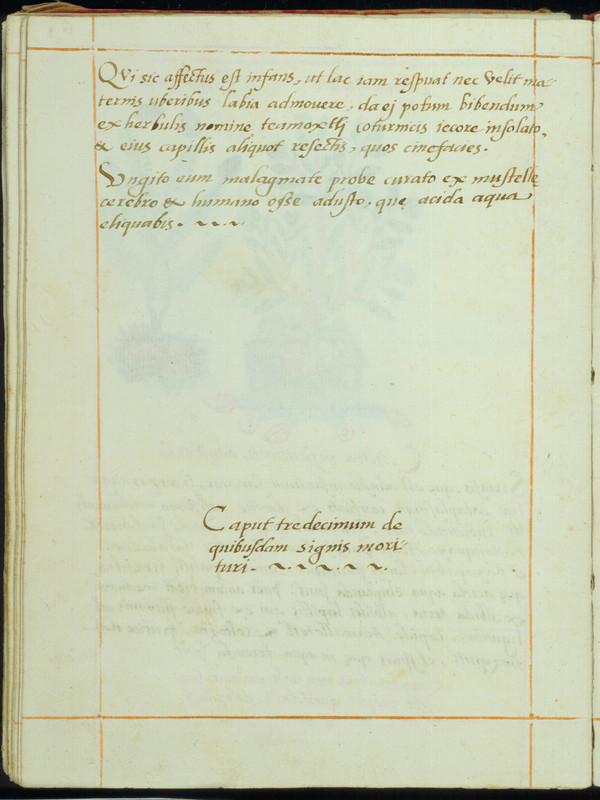 QVi sic affectus est infans, ut lac iam respuat nec velit ma-
ternis uberibus labia admovere, da ej potum bibendum
ex herbulis nomine teamoxtlj coturnicis iecore insolato,
& eius capillis aliquot resectis, quos cinefacies.
Vngito eum malagmate probe curato ex mustellę
cerebro & humano osse adusto, quę acida aqua
eliquabis.
Caput tredecimum de
quibusdam signis mori-
turi.